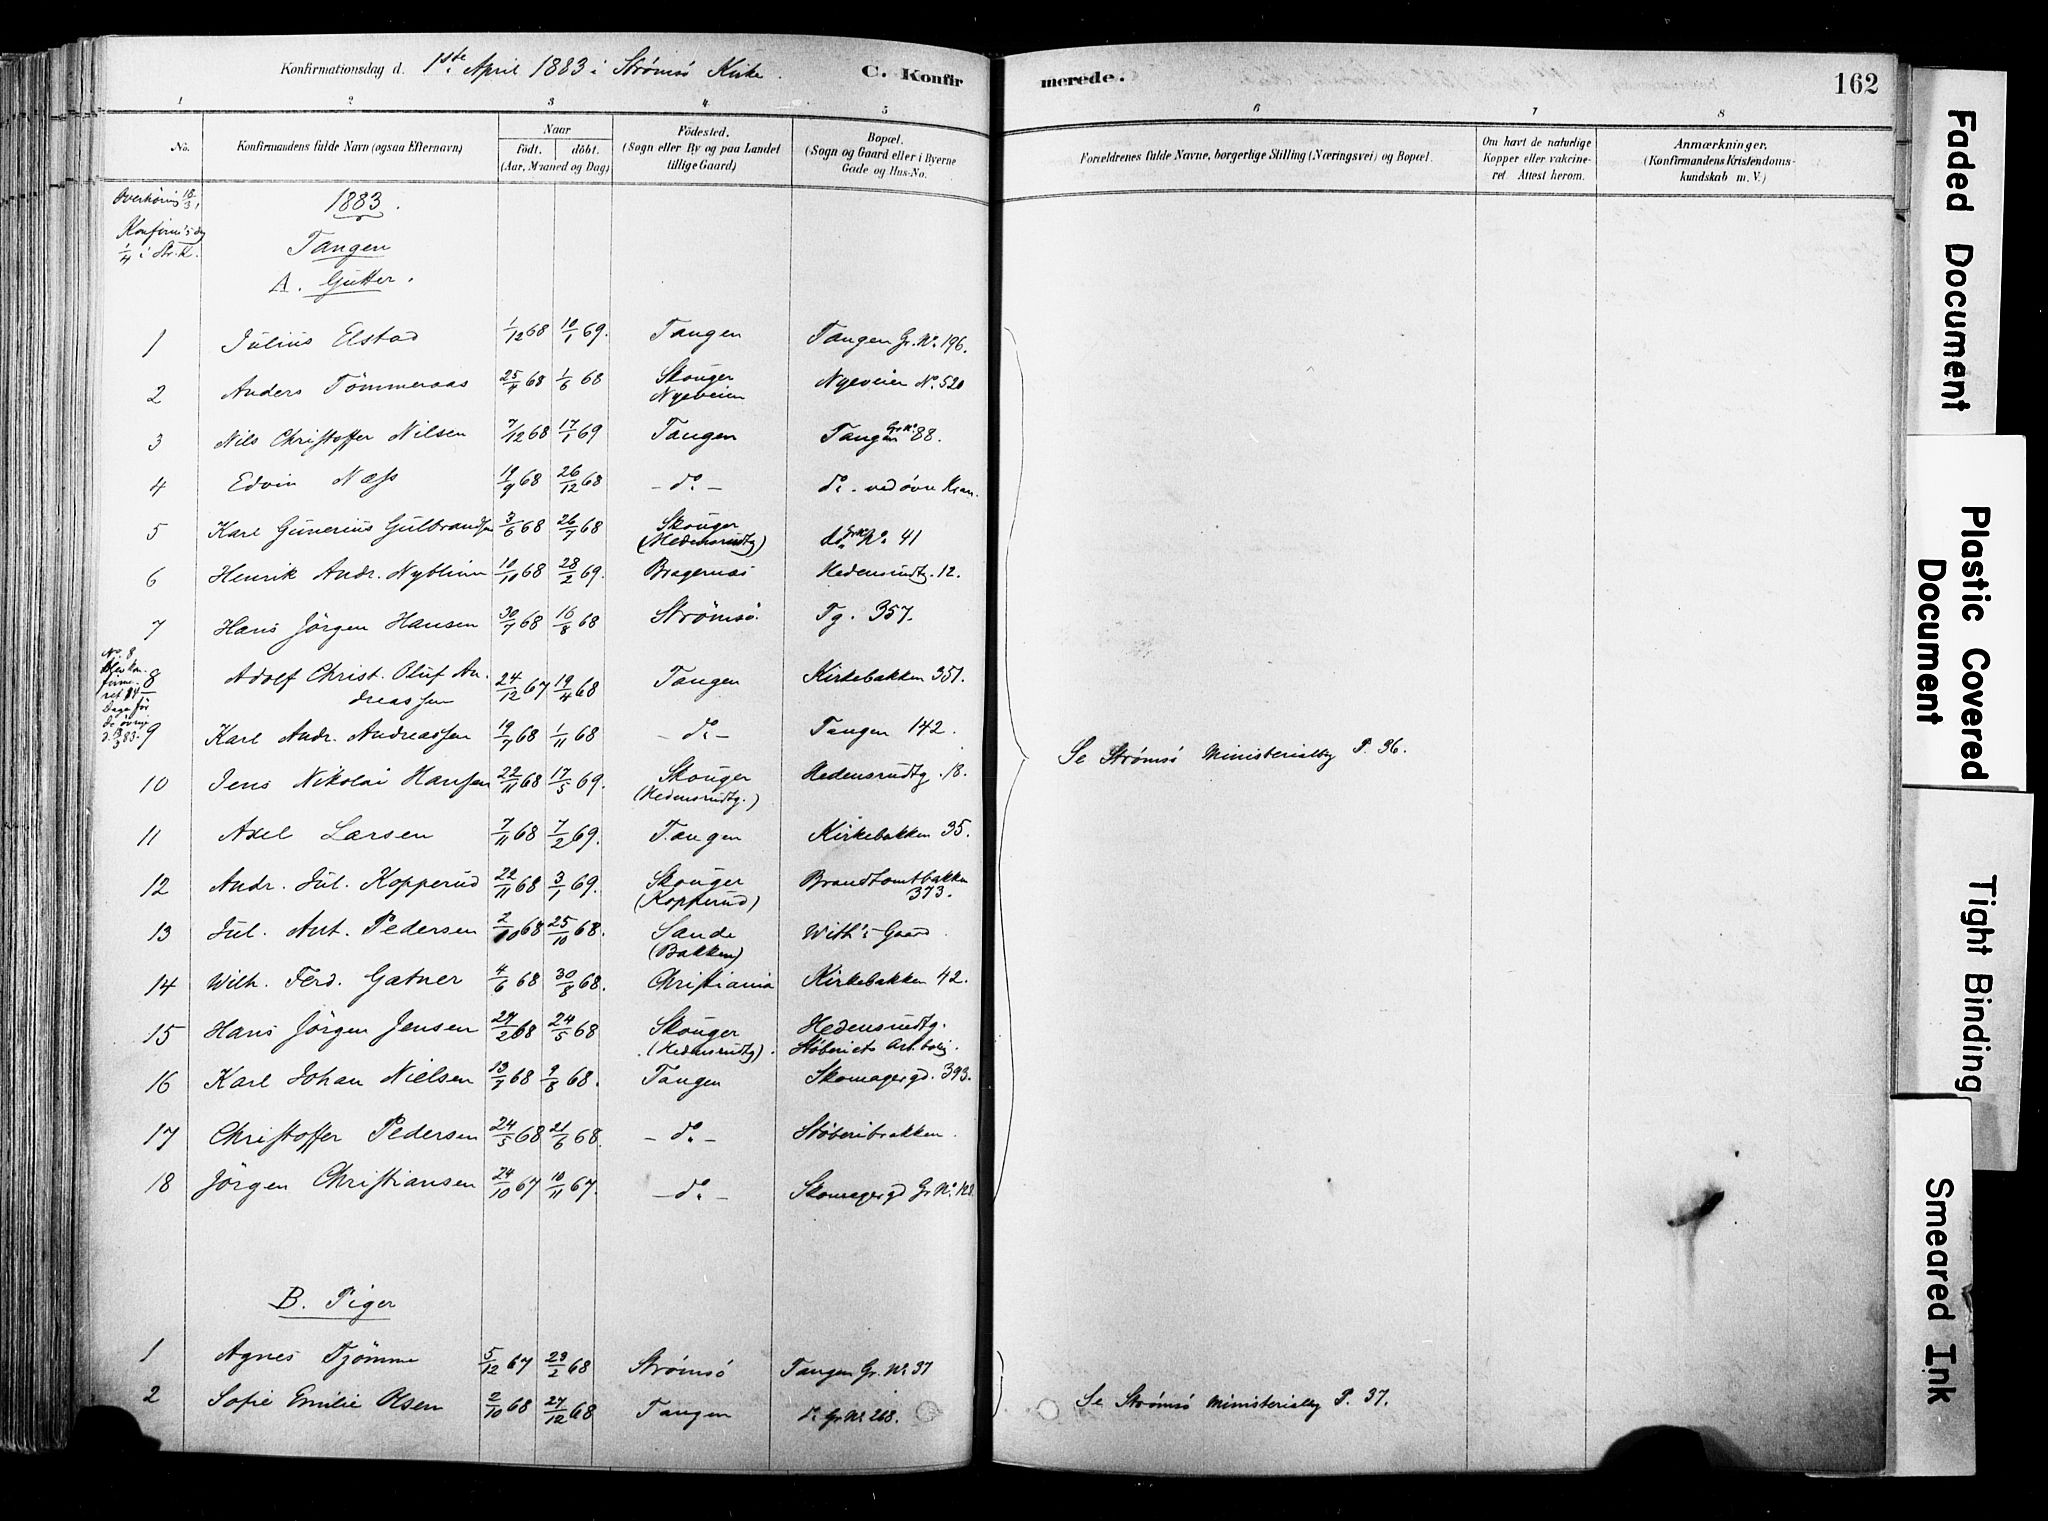 Konfirmationsdag d. 1ste April 1883 i Strømsø Kirke. C. Konfirmerede. 162
1 2 3 4 5 6 7 8
No.
Konfirmandens fulde Navn (ogsaa Efternavn)
Naar
födt. döbt.
(Aar, Maaned og Dag)
Födested.
(Sogn eller By og paa Landet
tillige Gaard)
Bopæl.
(Sogn og Gaard eller i Byerne
Gade og Hus-No.
Forældrenes fulde Navne, borgerlige Stilling (Næringsvei) og Bopæl.
Om havt de naturlige
Kopper eller vakcine-
ret. Attest herom.
Anmærkninger.
(Konfirmandens Kristendoms-
kundskab m. V.)
Overhöring 18/3
1883.
Konfirm's dag
1/4 i Str. K.
Tangen
A. Gutter.
1 Julius Elstad 1/12 68 10/1 69. Tangen Tangen Gr. No. 196.
2 Anders Tömmeraas 25/4 68 1/6 68 Skouger Nyeveien Nyeveien No. 520
3 Nils Christoffer Nilsen 7/12 68 17/1 69 Tangen Tangen Gr No. 88.
4 Edvin Næss 19/9 68 26/12 68 - do. - do. ved øvre Kran.
5 Karl Gunerius Gulbrandsen 3/6 68 26/7 68 Skouger (Hedensrudtg) do. Gr No. 41
6 Henrik Andr. Nyblinn 10/10 68 28/2 69. Bragernæs Hedensrudtg. 12.
7 Hans Jörgen Hansen 30/7 68 16/8 68 Strömsö. Tg. 357.
No. 8
blev kon-
firme-
ret 14
Dage før
de øvrige
83.
8 Adolf Christ. Oluf Andreassen 24/12 67 19/4 68 Tangen Kirkebakken 351.
9 Karl Andr. Andreassen 19/7 68 1/11 68 - do. - Tangen 142.
10 Jens Nikolai Hansen 22/11 68 17/5 69. Skouger (Hedensrudtg.) Hedensrudtg. 18.
11 Axel Larsen 7/11 68 7/2 69. Tangen Kirkebakken 35.
12 Andr. Jul. Kopperud 22/11 68 3/1 69. Skouger (Kopperud) Brandtomtbakken 373.
13 Jul. Ant. Pedersen 2/10 68 25/10 68. Sande (Bakken) With's Gaard
14 Wilh. Ferd. Gatner 4/6 68 30/8 68. Christiania Kirkebakken 42.
15 Hans Jörgen Jensen 24/2 68 24/5 68 Skouger (Hedensrudtg). Hedensrudtg. Støberiets Arb.bolig.
16 Karl Johan Nielsen 13/7 68 9/8 68. Tangen Skomagergd. 393.
17 Christoffer Pedersen 24/5 68 21/6 68. - do. - Støberibakken.
18 Jörgen Christiansen 24/10 67 10/11 67. - do. - Skomagergd Gr No. 128.
Se Strømsø Ministerialbg P. 36.
B. Piger
1 Agnes Tjömme 5/12 67 23/2 68 Strömsö Tangen Gr. No. 37
2 Sofie Emilie Olsen 2/10 68 27/12 68 Tangen do. Gr No. 268.
Se Strømsø Ministerialbg P. 37.
Faded Document
Plastic Covered
Document
Tight Binding
Smeared Ink